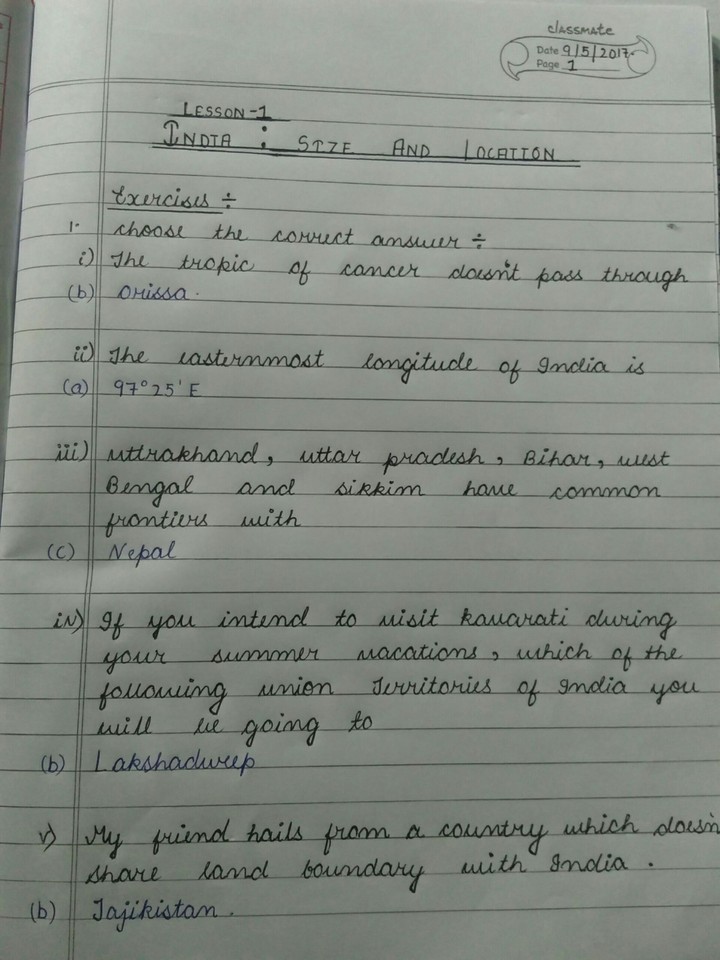 classmate
Date 9/5/2017
Page 1
LESSON-1
INDIA : SIZE AND LOCATION
Exercises ÷
1. choose the correct answer ÷
i) The tropic of cancer doesn't pass through
(b) orissa.
ii) The easternmost longitude of India is
(a) 97°25'E
iii) uttrakhand, uttar pradesh, Bihar, west
Bengal and sikkim have common
frontiers with
(c) Nepal
iv) If you intend to visit kavarati during
your summer vacations, which of the
following union Territories of India you
will be going to
(b) Lakshadweep
v) My friend hails from a country which doesn
share land boundary with India.
(b) Tajikistan.